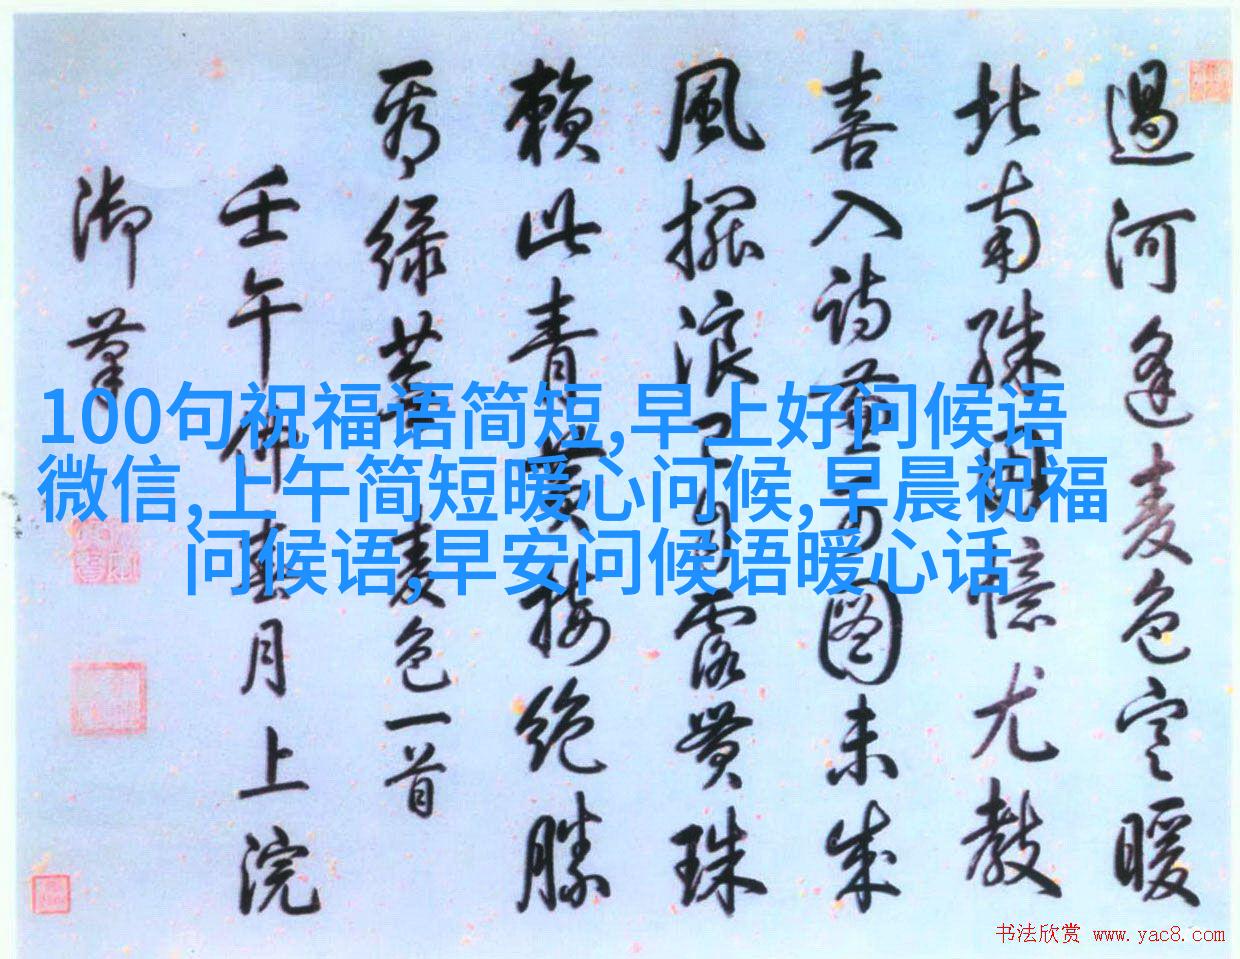 過河逢麦色寒暖
北南殊因憶尤教
喜入詩
图未成
風摇浪
露贯珠
賴此青黄接絶勝
秀緑
麦色一首
壬午仲春月上浣
御筆
100句祝福语简短,早上好问候语
微信,上午简短暖心问候,早晨祝福
问候语,早安问候语暖心话
书法欣赏 www.yac8.com